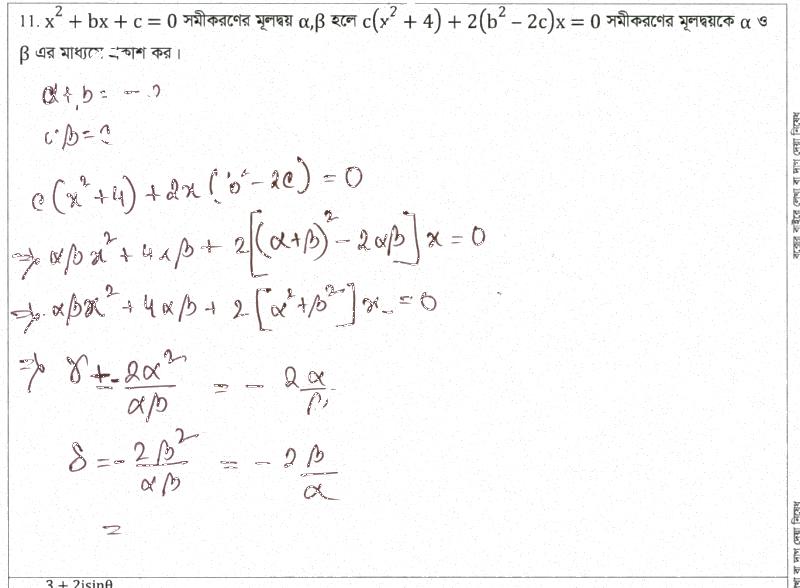 11. x² + bx + c = 0 সমীকরণের মূলদ্বয় α,β হলে c(x² + 4) + 2(b² − 2c)x = 0 সমীকরণের মূলদ্বয়কে α ও
β এর মাধ্যমে প্রকাশ কর।
α+b = −
β = c
c(x²+4) + 2x(b²−2c) = 0
⇒ αβx² + 4αβ + 2[(α+β)² − 2αβ]x = 0
⇒ αβx² + 4αβ + 2[α²+β²]x = 0
⇒ γ = −2α²/αβ = − 2α/β
δ = −2β²/αβ = − 2β/α
=
3 + 2isinθ
বক্সের বাইরে লেখা বা দাগ দেয়া নিষেধ
বা দাগ দেয়া নিষেধ